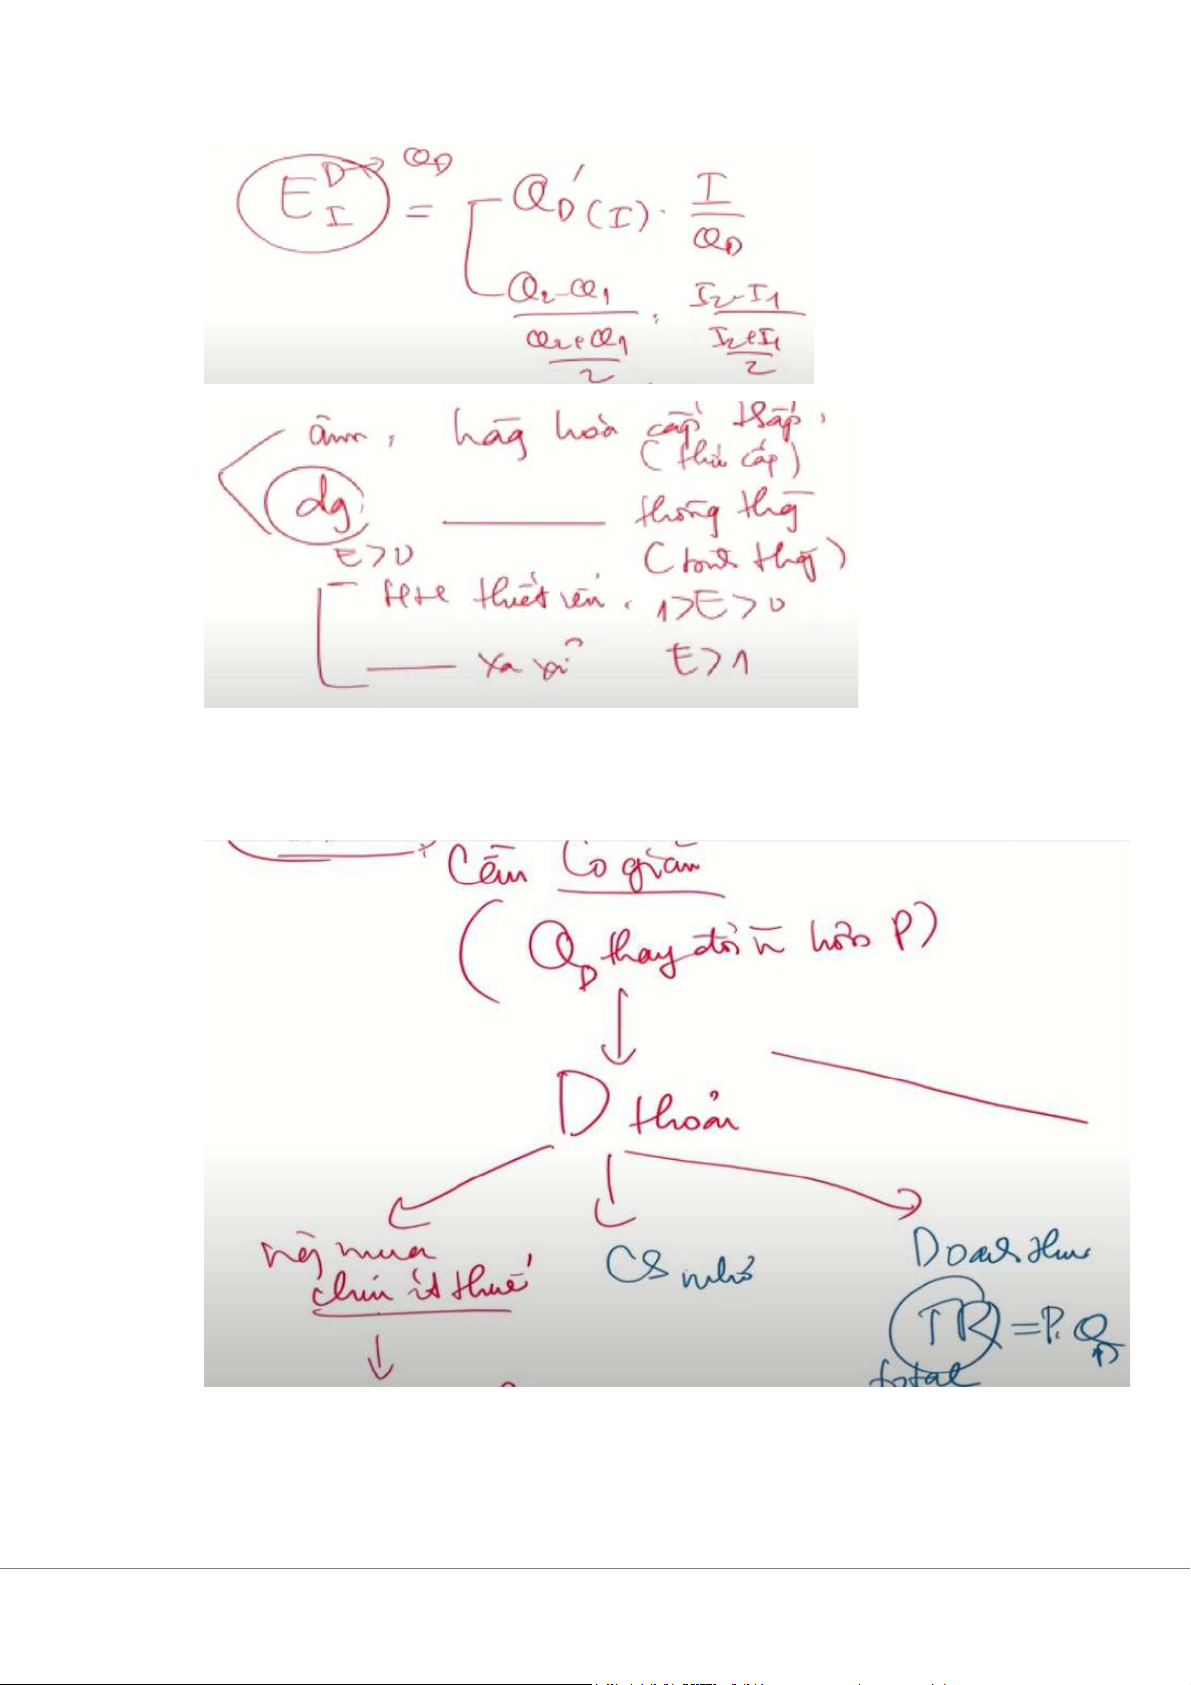 E_I^D → Q_D = Q_D'(I) · I/Q_D
(Q2 - Q1)/((Q2 + Q1)/2) : (I2 - I1)/((I2 + I1)/2)
âm, hàg hoá cấp thấp,
(thứ cấp)
dg, —— thông thg
E > 0
HH thiết yếu, 1 > E > 0
—— xa xỉ E > 1
Cầu co giãn
(Q_D thay đổi n hơn P)
D thoải
ng mua
chịu ít thuế
CS nhỏ
Doanh thu
TR = P. Q_D
total